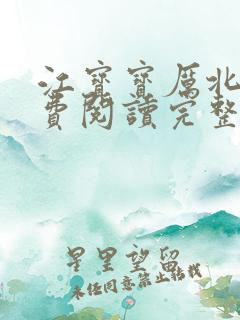 江寶寶厲北
費閱讀完整
星里望留
未经同意禁止转载